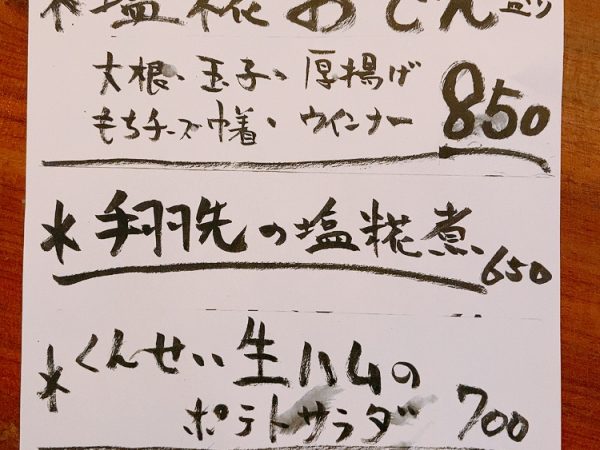 *塩糀おでん盛り
大根、玉子、厚揚げ
もちチーズ巾着、ウインナー 850
*手羽先の塩糀煮 650
*くんせい生ハムの
ポテトサラダ 700